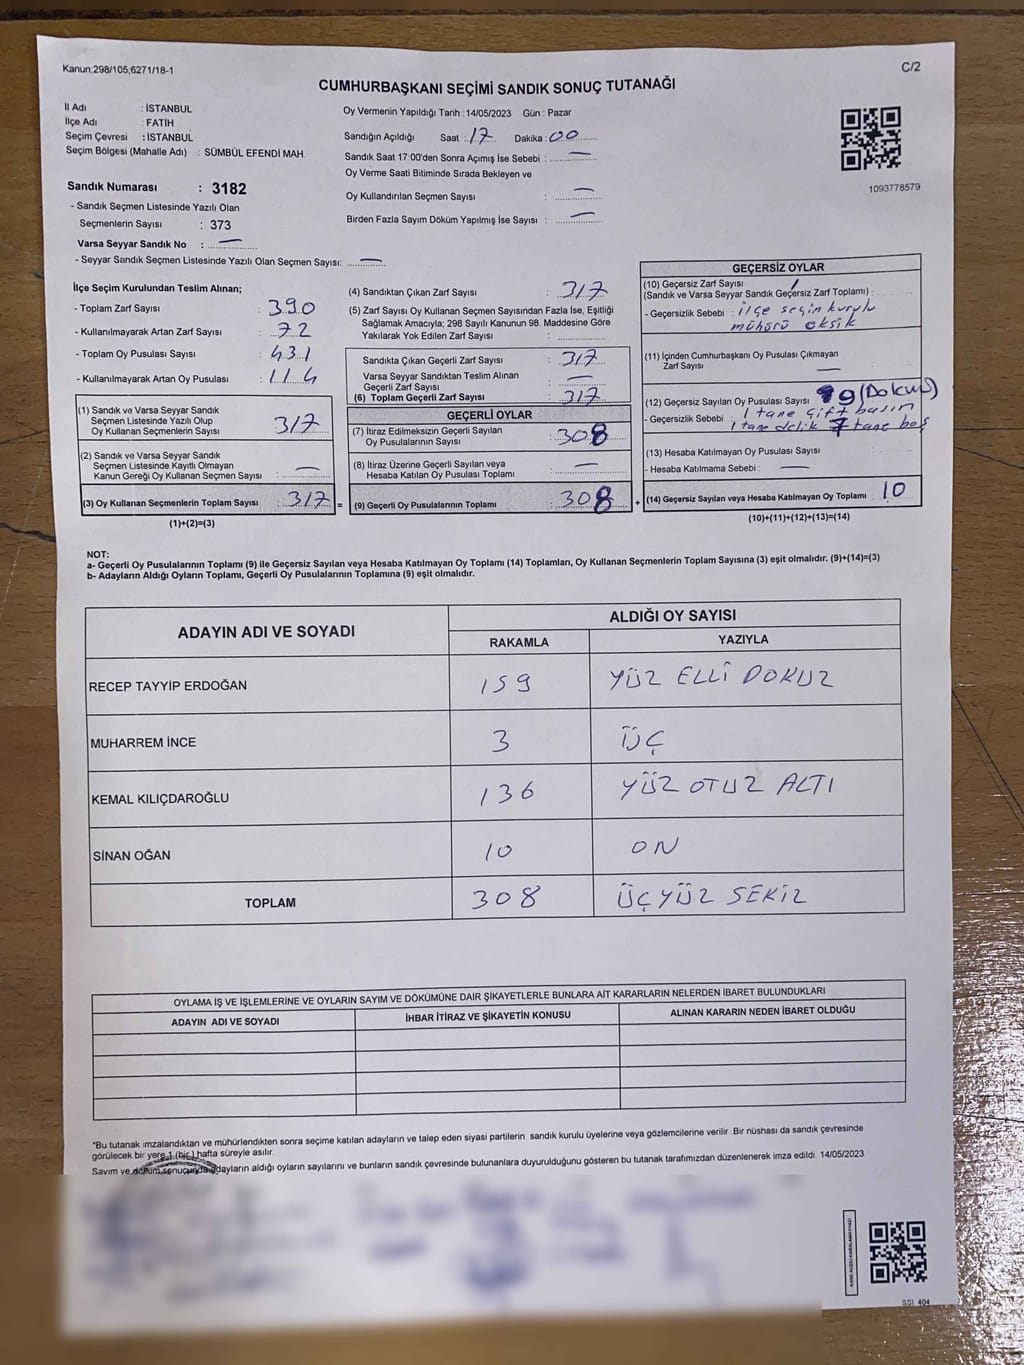 Kanun:298/105;6271/18-1
C/2
CUMHURBAŞKANI SEÇİMİ SANDIK SONUÇ TUTANAĞI
İl Adı : İSTANBUL
İlçe Adı : FATİH
Seçim Çevresi : İSTANBUL
Seçim Bölgesi (Mahalle Adı) : SÜMBÜL EFENDİ MAH.
Sandık Numarası : 3182
- Sandık Seçmen Listesinde Yazılı Olan
Seçmenlerin Sayısı : 373
Varsa Seyyar Sandık No : —
- Seyyar Sandık Seçmen Listesinde Yazılı Olan Seçmen Sayısı: —
Oy Vermenin Yapıldığı Tarih : 14/05/2023 Gün : Pazar
Sandığın Açıldığı Saat : 17 Dakika : 00
Sandık Saat 17:00'den Sonra Açımış İse Sebebi : —
Oy Verme Saati Bitiminde Sırada Bekleyen ve
Oy Kullandırılan Seçmen Sayısı : —
Birden Fazla Sayım Döküm Yapılmış İse Sayısı : —
1093778579
İlçe Seçim Kurulundan Teslim Alınan;
- Toplam Zarf Sayısı : 390
- Kullanılmayarak Artan Zarf Sayısı : 72
- Toplam Oy Pusulası Sayısı : 431
- Kullanılmayarak Artan Oy Pusulası : 114
(1) Sandık ve Varsa Seyyar Sandık
Seçmen Listesinde Yazılı Olup
Oy Kullanan Seçmenlerin Sayısı 317
(2) Sandık ve Varsa Seyyar Sandık
Seçmen Listesinde Kayıtlı Olmayan
Kanun Gereği Oy Kullanan Seçmen Sayısı : —
(3) Oy Kullanan Seçmenlerin Toplam Sayısı : 317 =
(1)+(2)=(3)
(4) Sandıktan Çıkan Zarf Sayısı : 317
(5) Zarf Sayısı Oy Kullanan Seçmen Sayısından Fazla İse, Eşitliği
Sağlamak Amacıyla; 298 Sayılı Kanunun 98. Maddesine Göre
Yakılarak Yok Edilen Zarf Sayısı :
Sandıkta Çıkan Geçerli Zarf Sayısı : 317
Varsa Seyyar Sandıktan Teslim Alınan
Geçerli Zarf Sayısı : —
(6) Toplam Geçerli Zarf Sayısı : 317
GEÇERLİ OYLAR
(7) İtiraz Edilmeksizin Geçerli Sayılan
Oy Pusulalarının Sayısı : 308
(8) İtiraz Üzerine Geçerli Sayılan veya
Hesaba Katılan Oy Pusulası Toplamı : —
(9) Geçerli Oy Pusulalarının Toplamı : 308 +
GEÇERSİZ OYLAR
(10) Geçersiz Zarf Sayısı 1
(Sandık ve Varsa Seyyar Sandık Geçersiz Zarf Toplamı) :
- Geçersizlik Sebebi : ilçe seçim kurulu
mührü eksik
(11) İçinden Cumhurbaşkanı Oy Pusulası Çıkmayan
Zarf Sayısı : —
(12) Geçersiz Sayılan Oy Pusulası Sayısı 9 (Dokuz)
- Geçersizlik Sebebi : 1 tane çift basım
1 tane delik 7 tane boş
(13) Hesaba Katılmayan Oy Pusulası Sayısı :
- Hesaba Katılmama Sebebi : —
(14) Geçersiz Sayılan veya Hesaba Katılmayan Oy Toplamı : 10
(10)+(11)+(12)+(13)=(14)
NOT:
a- Geçerli Oy Pusulalarının Toplamı (9) ile Geçersiz Sayılan veya Hesaba Katılmayan Oy Toplamı (14) Toplamları, Oy Kullanan Seçmenlerin Toplam Sayısına (3) eşit olmalıdır. (9)+(14)=(3)
b- Adayların Aldığı Oyların Toplamı, Geçerli Oy Pusulalarının Toplamına (9) eşit olmalıdır.
ADAYIN ADI VE SOYADI
ALDIĞI OY SAYISI
RAKAMLA YAZIYLA
RECEP TAYYİP ERDOĞAN 159 YÜZ ELLİ DOKUZ
MUHARREM İNCE 3 ÜÇ
KEMAL KILIÇDAROĞLU 136 YÜZ OTUZ ALTI
SİNAN OĞAN 10 ON
TOPLAM 308 ÜÇYÜZ SEKİZ
OYLAMA İŞ VE İŞLEMLERİNE VE OYLARIN SAYIM VE DÖKÜMÜNE DAİR ŞİKAYETLERLE BUNLARA AİT KARARLARIN NELERDEN İBARET BULUNDUKLARI
ADAYIN ADI VE SOYADI İHBAR İTİRAZ VE ŞİKAYETİN KONUSU ALINAN KARARIN NEDEN İBARET OLDUĞU
*Bu tutanak imzalandıktan ve mühürlendikten sonra seçime katılan adayların ve talep eden siyasi partilerin sandık kurulu üyelerine veya gözlemcilerine verilir. Bir nüshası da sandık çevresinde
görülecek bir yere 1 (bir) hafta süreyle asılır.
Sayım ve döküm sonucunda adayların aldığı oyların sayılarını ve bunların sandık çevresinde bulunanlara duyurulduğunu gösteren bu tutanak tarafımızdan düzenlenerek imza edildi. 14/05/2023